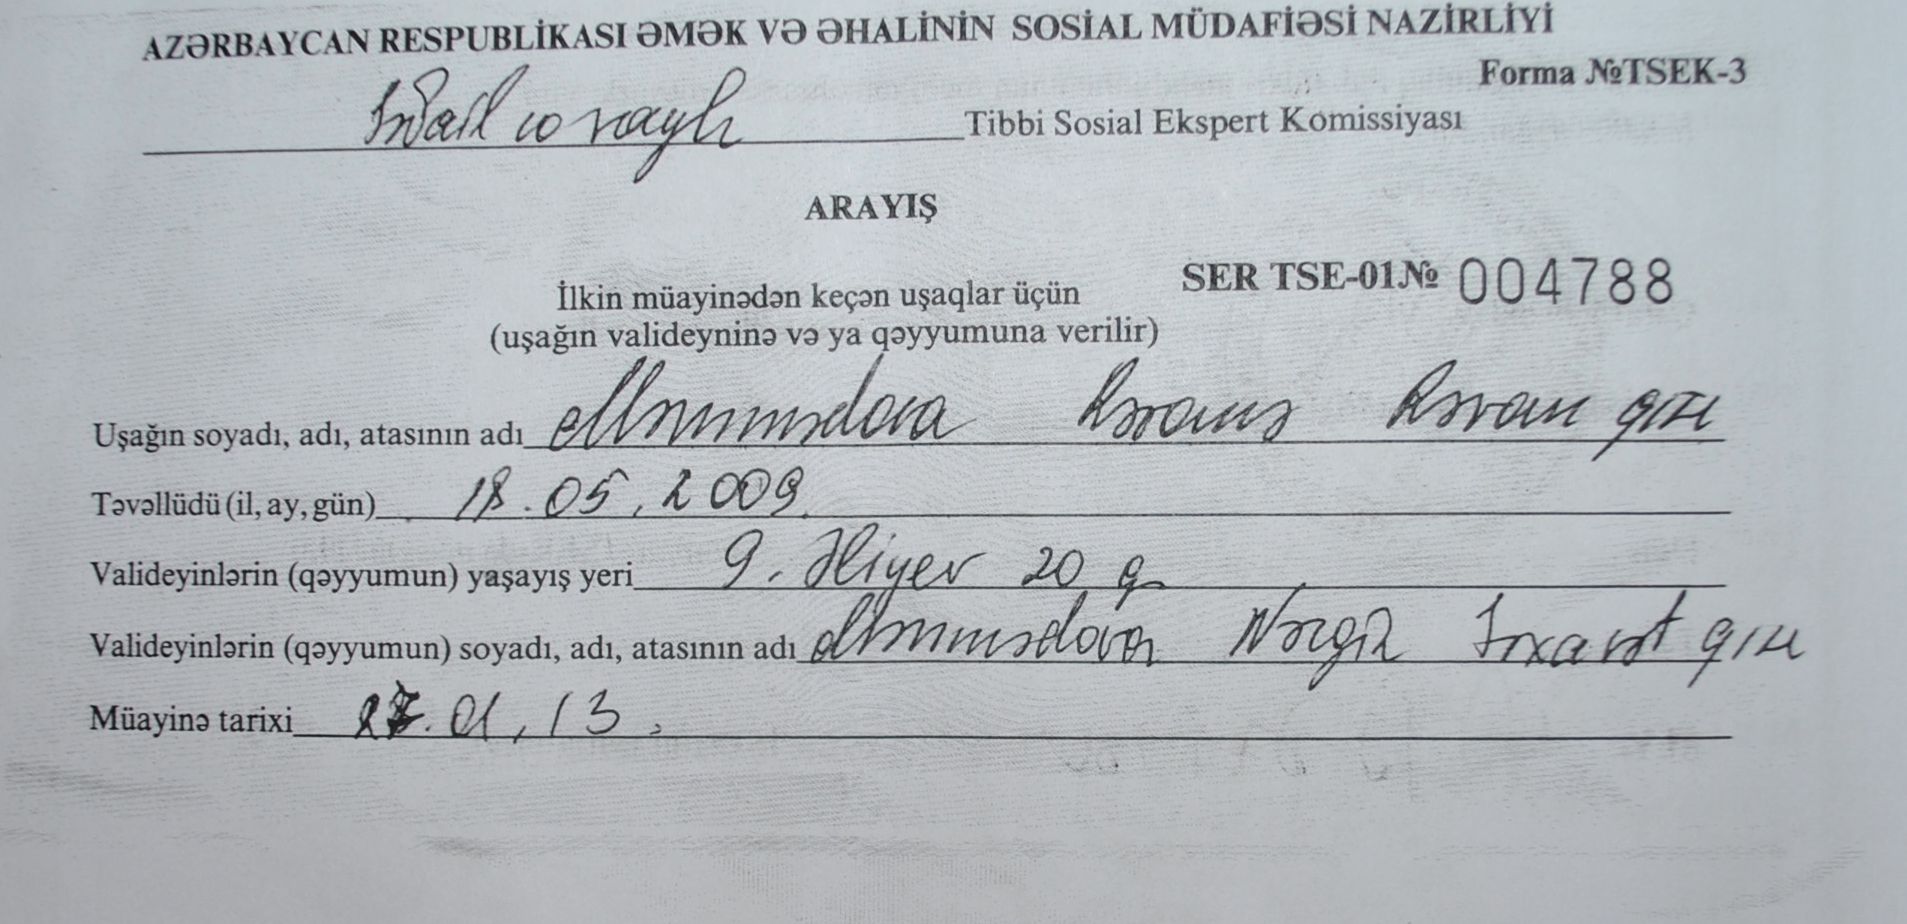 AZƏRBAYCAN RESPUBLİKASI ƏMƏK VƏ ƏHALİNİN SOSİAL MÜDAFİƏSİ NAZİRLİYİ
Forma №TSEK-3
Tibbi Sosial Ekspert Komissiyası
ARAYIŞ
SER TSE-01№ 004788
İlkin müayinədən keçən uşaqlar üçün
(uşağın valideyninə və ya qəyyumuna verilir)
Uşağın soyadı, adı, atasının adı Məmmədova Rəvan qızı
Təvəllüdü (il, ay, gün) 18.05.2009
Valideyinlərin (qəyyumun) yaşayış yeri Əliyev 20
Valideyinlərin (qəyyumun) soyadı, adı, atasının adı Məmmədova Nərgiz qızı
Müayinə tarixi 01,13